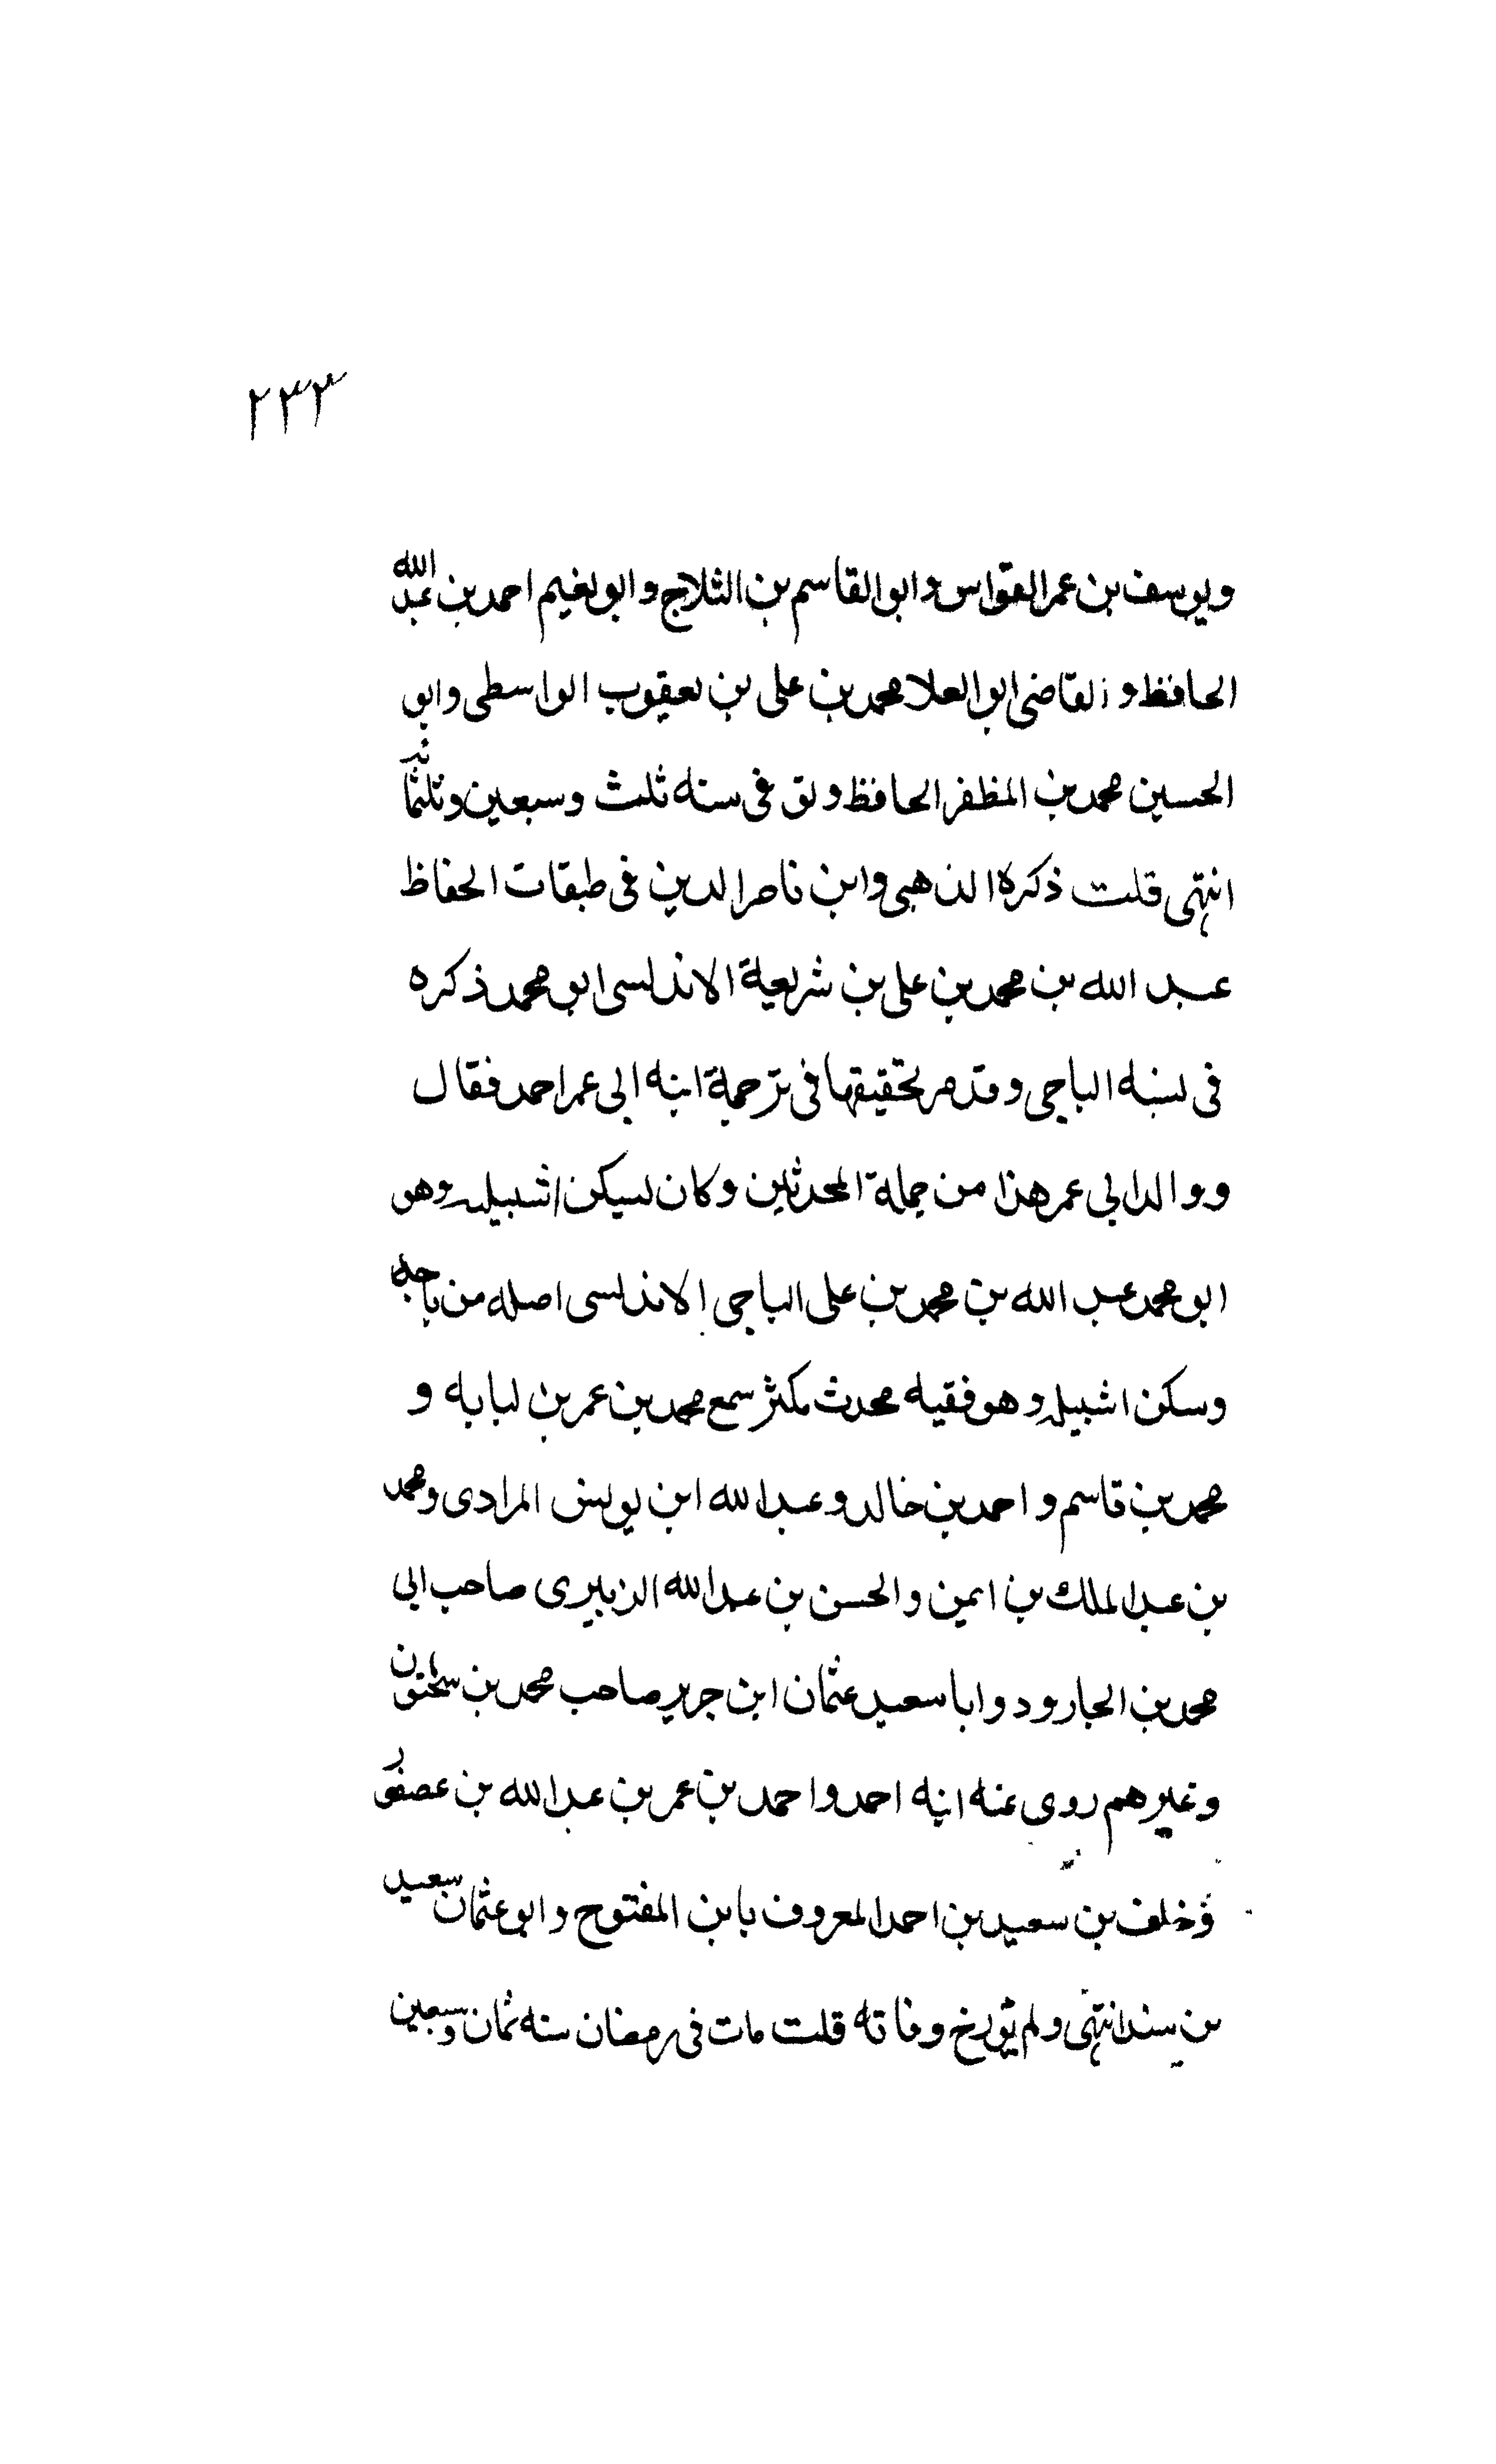 ٢٣٣
ويوسف بن عمر القواس وابو القاسم بن الثلاج وابو نعيم احمد بن عبد الله
الحافظ و القاضى ابو العلا محمد بن على بن يعقوب الواسطى وابو
الحسين محمد بن المظفر الحافظ وتوفى سنه ثلث وسبعين وثلثمائه
انتهى قلت ذكره الذهبى وابن ناصر الدين فى طبقات الحفاظ
عبد الله بن محمد بن على بن شريعة الاندلسى ابو محمد ذكره
فى نسبه الباجى وقد مر تحقيقها فى ترجمة ابنه ابى عمر احمد فقال
ووالد ابى عمر هذا من جملة المحدثين وكان يسكن اشبيليه وهو
ابو محمد عبد الله بن محمد بن على الباجى الاندلسى اصله من باجه
وسكن اشبيليه وهو فقيه محدث مكثر سمع محمد بن عمر بن لبابه و
محمد بن قاسم و احمد بن خالد وعبد الله ابن يونس المرادى ومحمد
بن عبد الملك بن ايمن والحسن بن عبد الله الزبيرى صاحب ابى
محمد بن الجارود وابا سعيد عثمان ابن جرير صاحب محمد بن سحنون
وغيرهم روى عنه ابنه احمد واحمد بن عمر بن عبد الله بن عصفور
وخلف بن سعيد بن احمد المعروف بابن المفتوح وابو عثمان سعيد
بن سيد انتهى ولم يورخ وفاته قلت مات فى رمضان سنه ثمان وسبعين